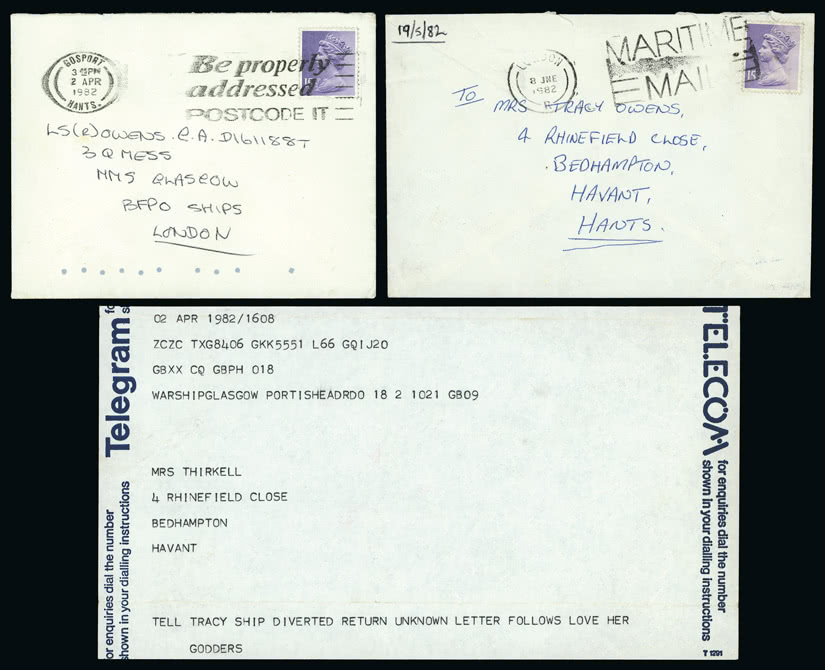 GOSPORT
3 45PM
2 APR
1982
HANTS.
Be properly
addressed
POSTCODE IT
LS(R) OWENS. C.A. D161188T
3 Q MESS
HMS GLASGOW
BFPO SHIPS
LONDON
19/5/82
LONDON
8 JNE
1982
MARITIME
MAIL
To MRS TRACY OWENS,
4 RHINEFIELD CLOSE,
BEDHAMPTON,
HAVANT,
HANTS.
Telegram
or enquiries dial the number
shown in your dialling instructions
02 APR 1982/1608
ZCZC TXG8406 GKK5551 L66 GQIJ20
GBXX CQ GBPH 018
WARSHIPGLASGOW PORTISHEADRDO 18 2 1021 GB09
MRS THIRKELL
4 RHINEFIELD CLOSE
BEDHAMPTON
HAVANT
TELL TRACY SHIP DIVERTED RETURN UNKNOWN LETTER FOLLOWS LOVE HER
GODDERS
TELECOM
for enquiries dial the number
shown in your dialling instructions
T 1291